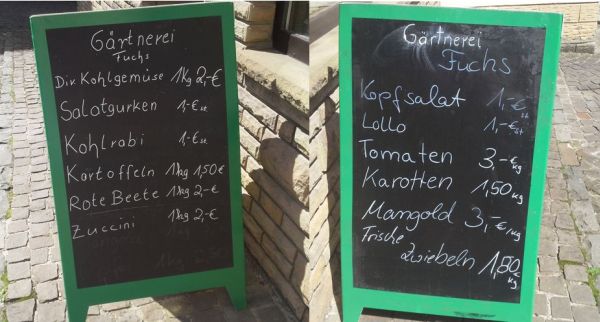 Gärtnerei
Fuchs
Div. Kohlgemüse 1kg 2,-€
Salatgurken 1,-€ st
Kohlrabi 1,-€ st
Kartoffeln 1kg 1,50€
Rote Beete 1kg 2,-€
Zuccini 1kg 2,-€
Gärtnerei
Fuchs
Kopfsalat 1,-€ st
Lollo 1,-€ st
Tomaten 3,-€ kg
Karotten 1,50 kg
Mangold 3,-€/kg
Frische
Zwiebeln 1,50 kg